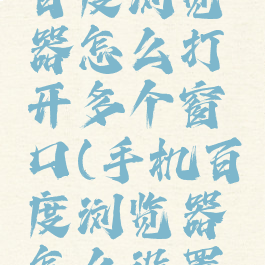 百度浏览
器怎么打
开多个窗
口(手机百
度浏览器
怎么设置